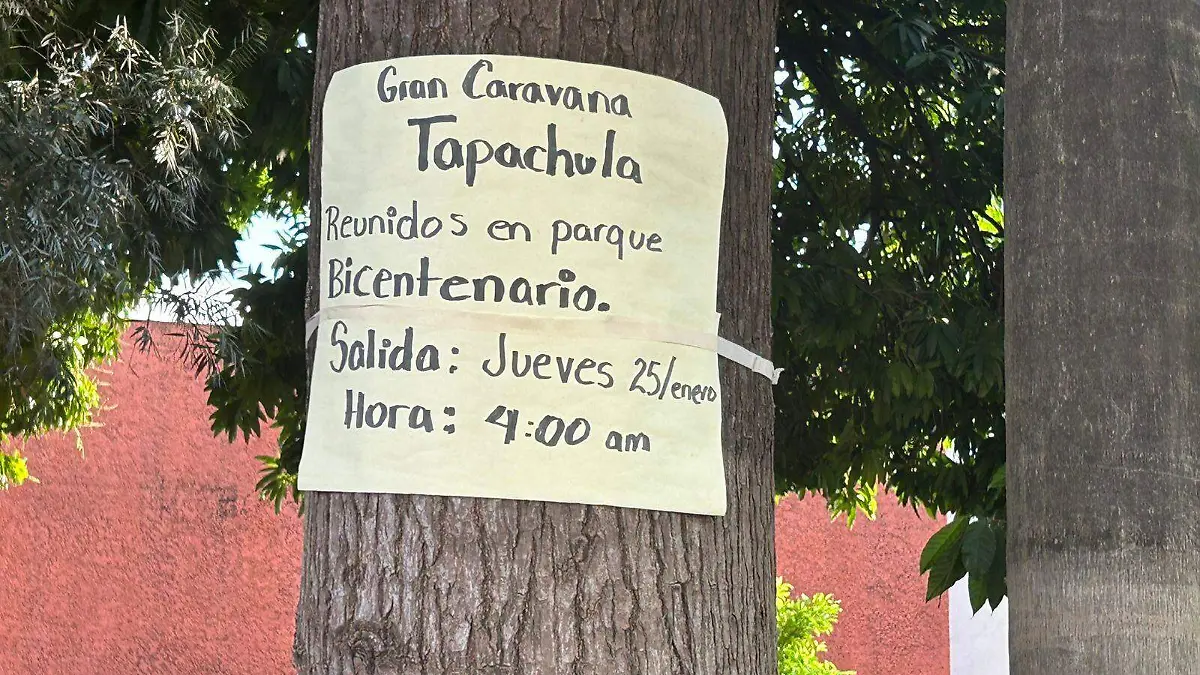 Gran Caravana
Tapachula
Reunidos en parque
Bicentenario.
Salida: Jueves 25/enero
Hora: 4:00 am